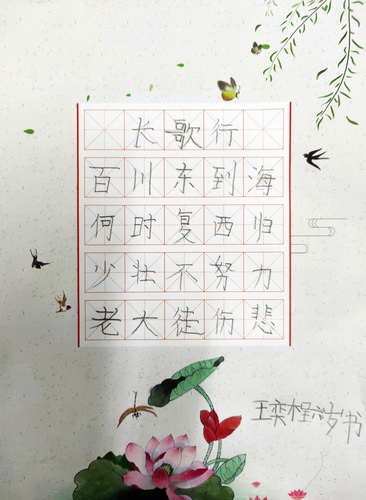 长歌行
百川东到海
何时复西归
少壮不努力
老大徒伤悲
王奕程六岁书